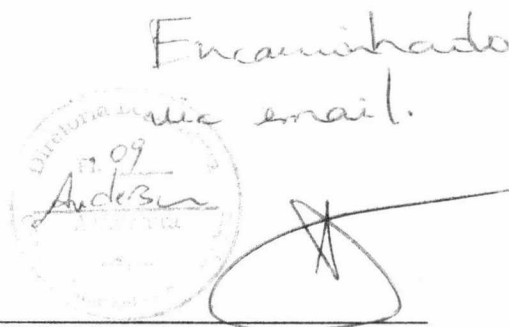 Encaminhado
via email.
Diretoria
fl. 09
Anderson